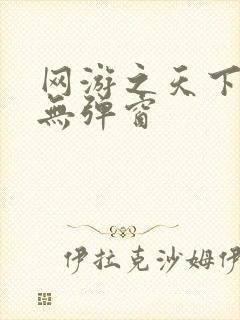 网游之天下
無弹窗
伊拉克沙姆伊